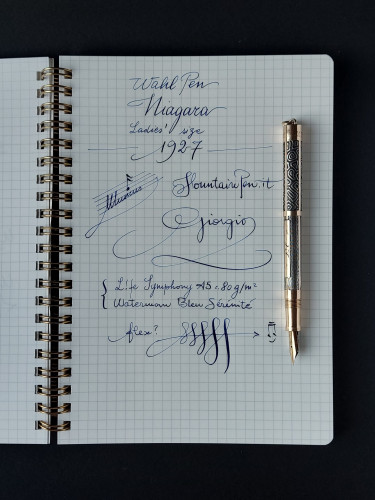 Wahl Pen
Niagara
Ladies' size
1927
FountainPen.it
Giorgio
Life Symphony A5 · 80 g/m²
Waterman Bleu Sérénité
flex?